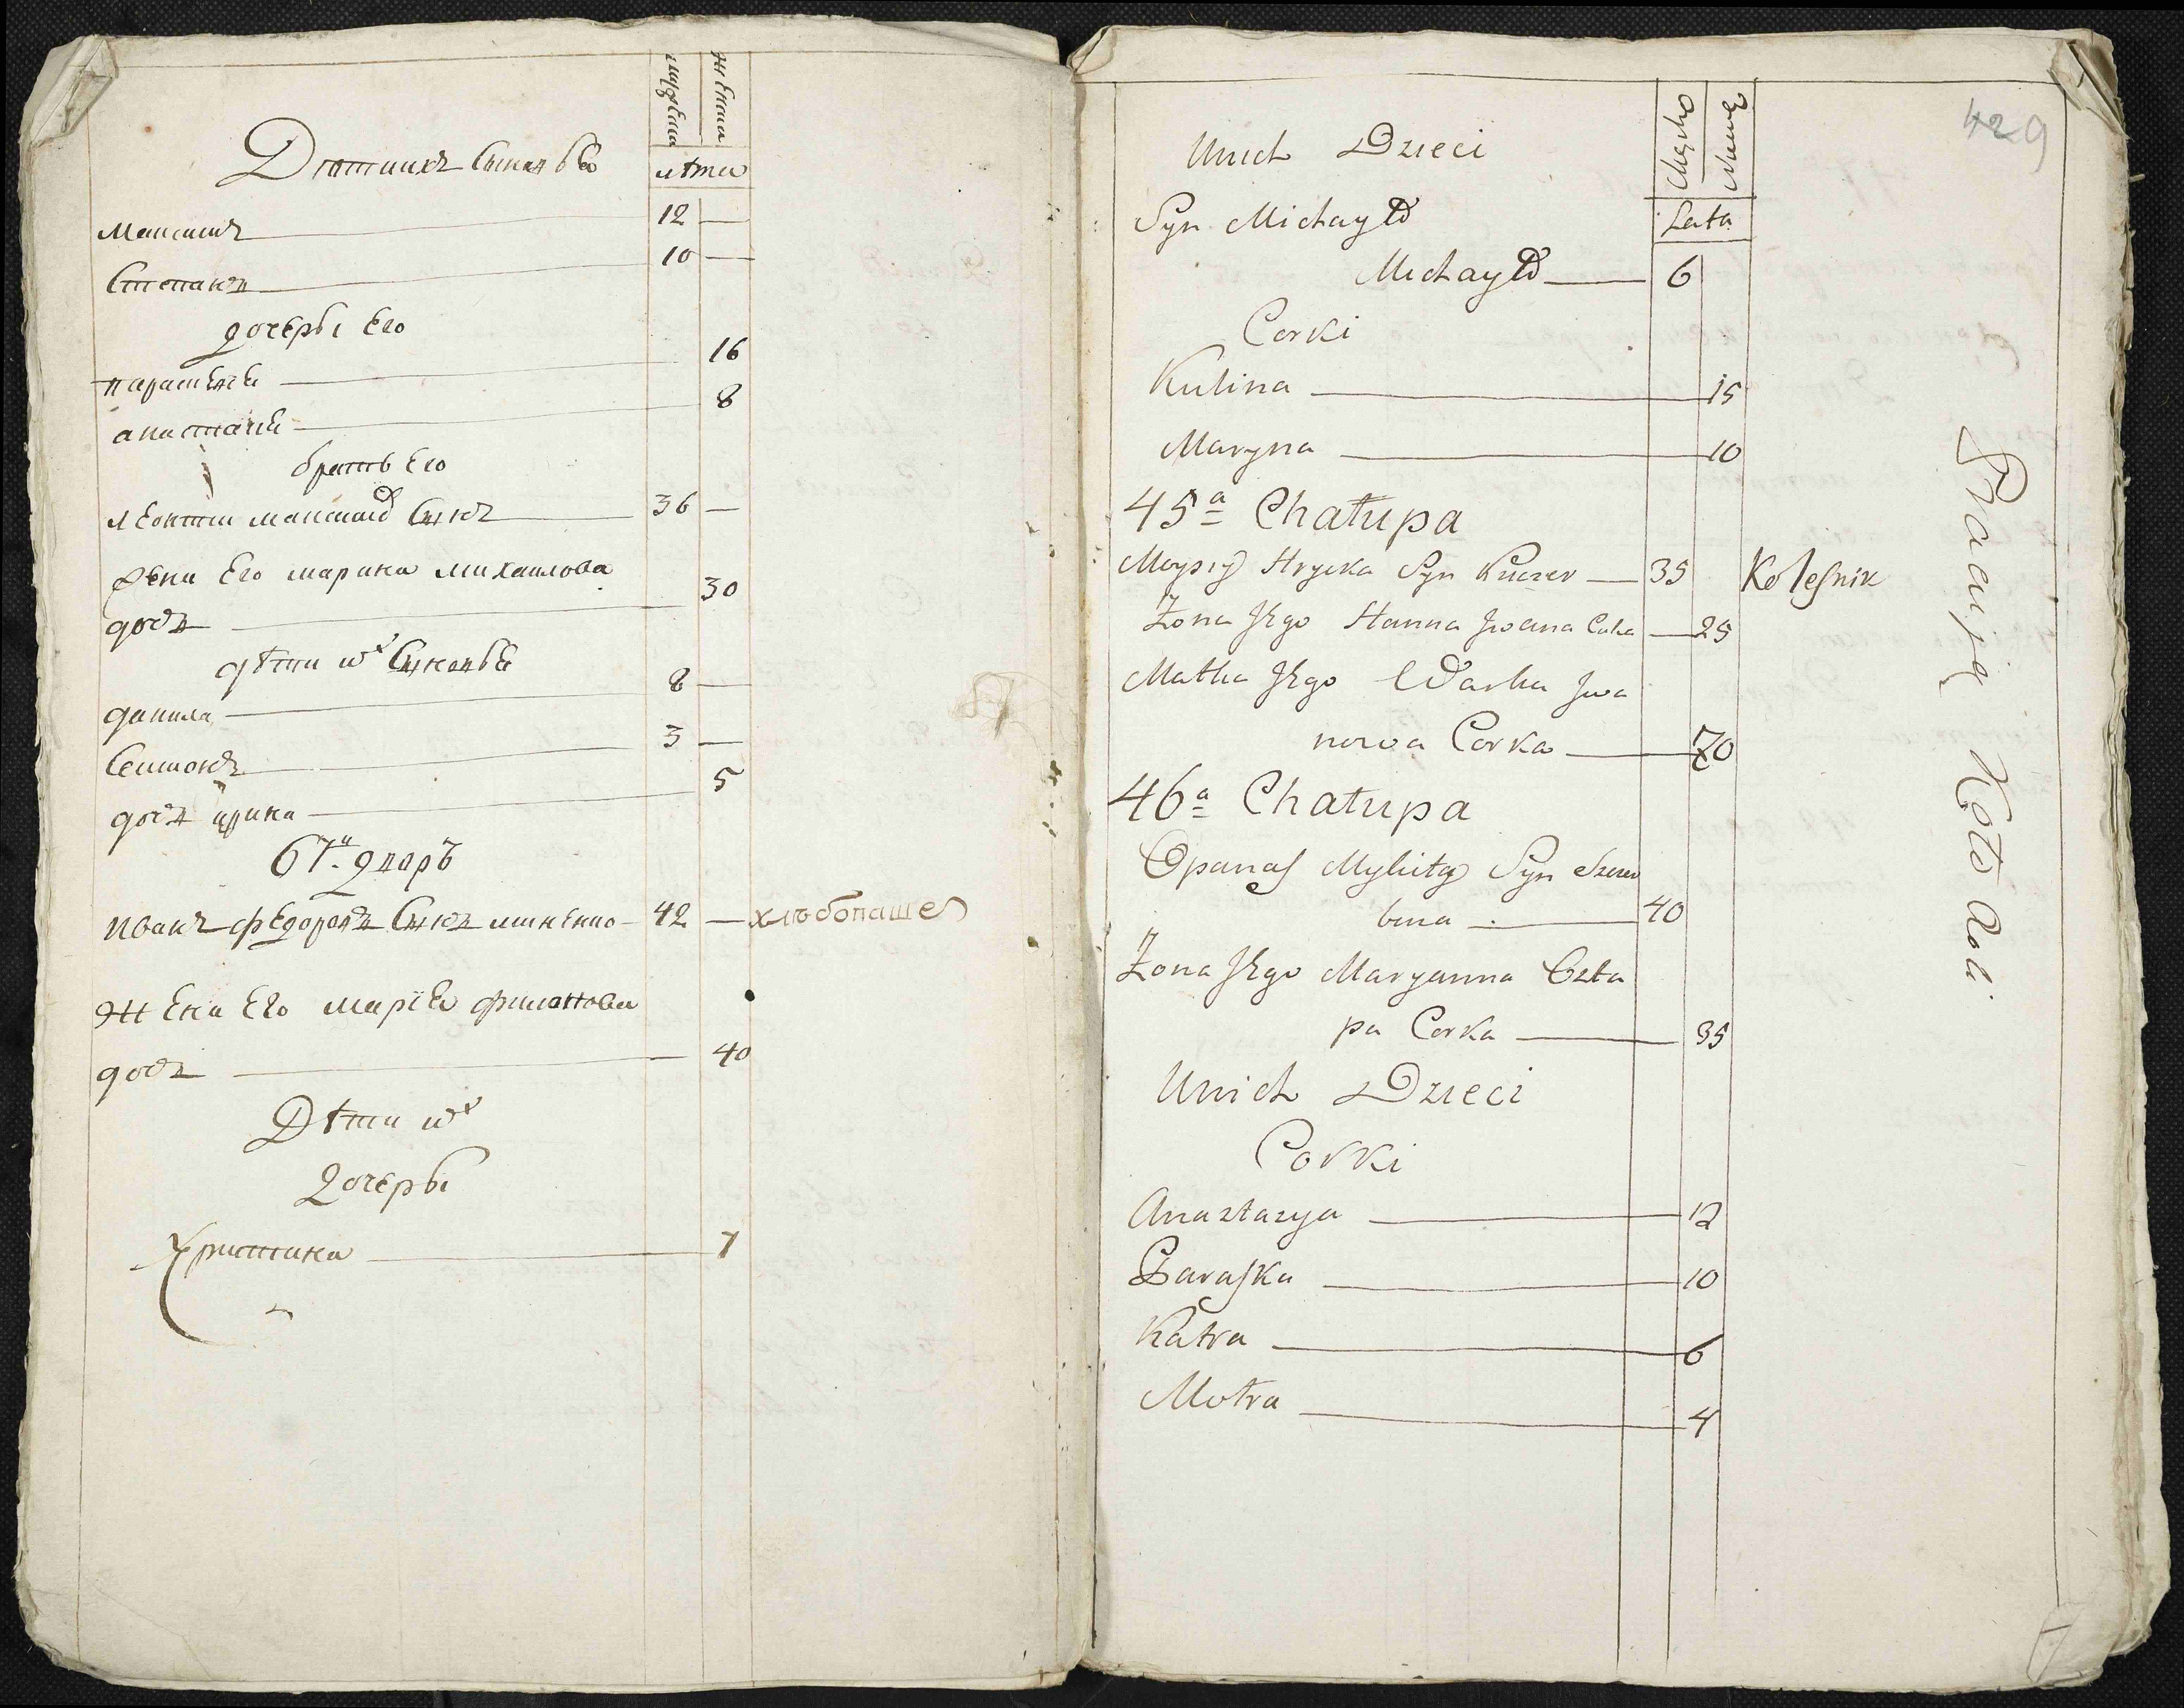 мужеска женска
Дѣти ихъ Сыновья
лѣта
Максимъ 12 —
Степанъ 10 —
дочеры Его
параскевея 16
анастасия 8
братъ Его
леонтии максимов Сынъ 36 —
жена Его марина михаилова
дочь 30
дѣти их Сыновья
данила 8 —
Семионъ 3 —
дочь ирина 5
67й дворъ
иванъ федоровъ Сынъ миненко 42 — хлѣбопашец
жена Его мария филипова
дочь 40
Дѣти их
дочеры
христина 7
429
Męsko Niewie
Unich Dzieci
Lata
Syn Michayło
Michayło 6
Corki
Kulina 15
Maryna 10
45a Chałupa
Moysiy Hrycka Syn Kuczer 35 Kolesnik
Żona Jego Hanna Jwana Corka 25
Matka Jego Warka Jwa
nowa Corka 70
46a Chałupa
Opanas Mykity Syn Szczer
bina 40
Żona Jego Maryanna Osta
pa Corka 35
Unich Dzieci
Corki
Anaztazya 12
Paraska 10
Katra 6
Motra 4
Pracują Koło Roli.